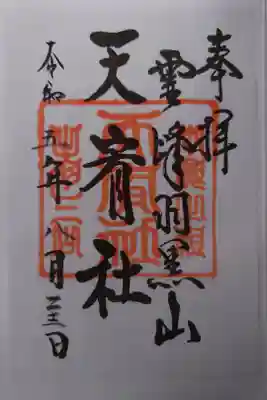 奉拝
霊峰羽黒山
天宥社
令和五年八月二十三日
天宥社